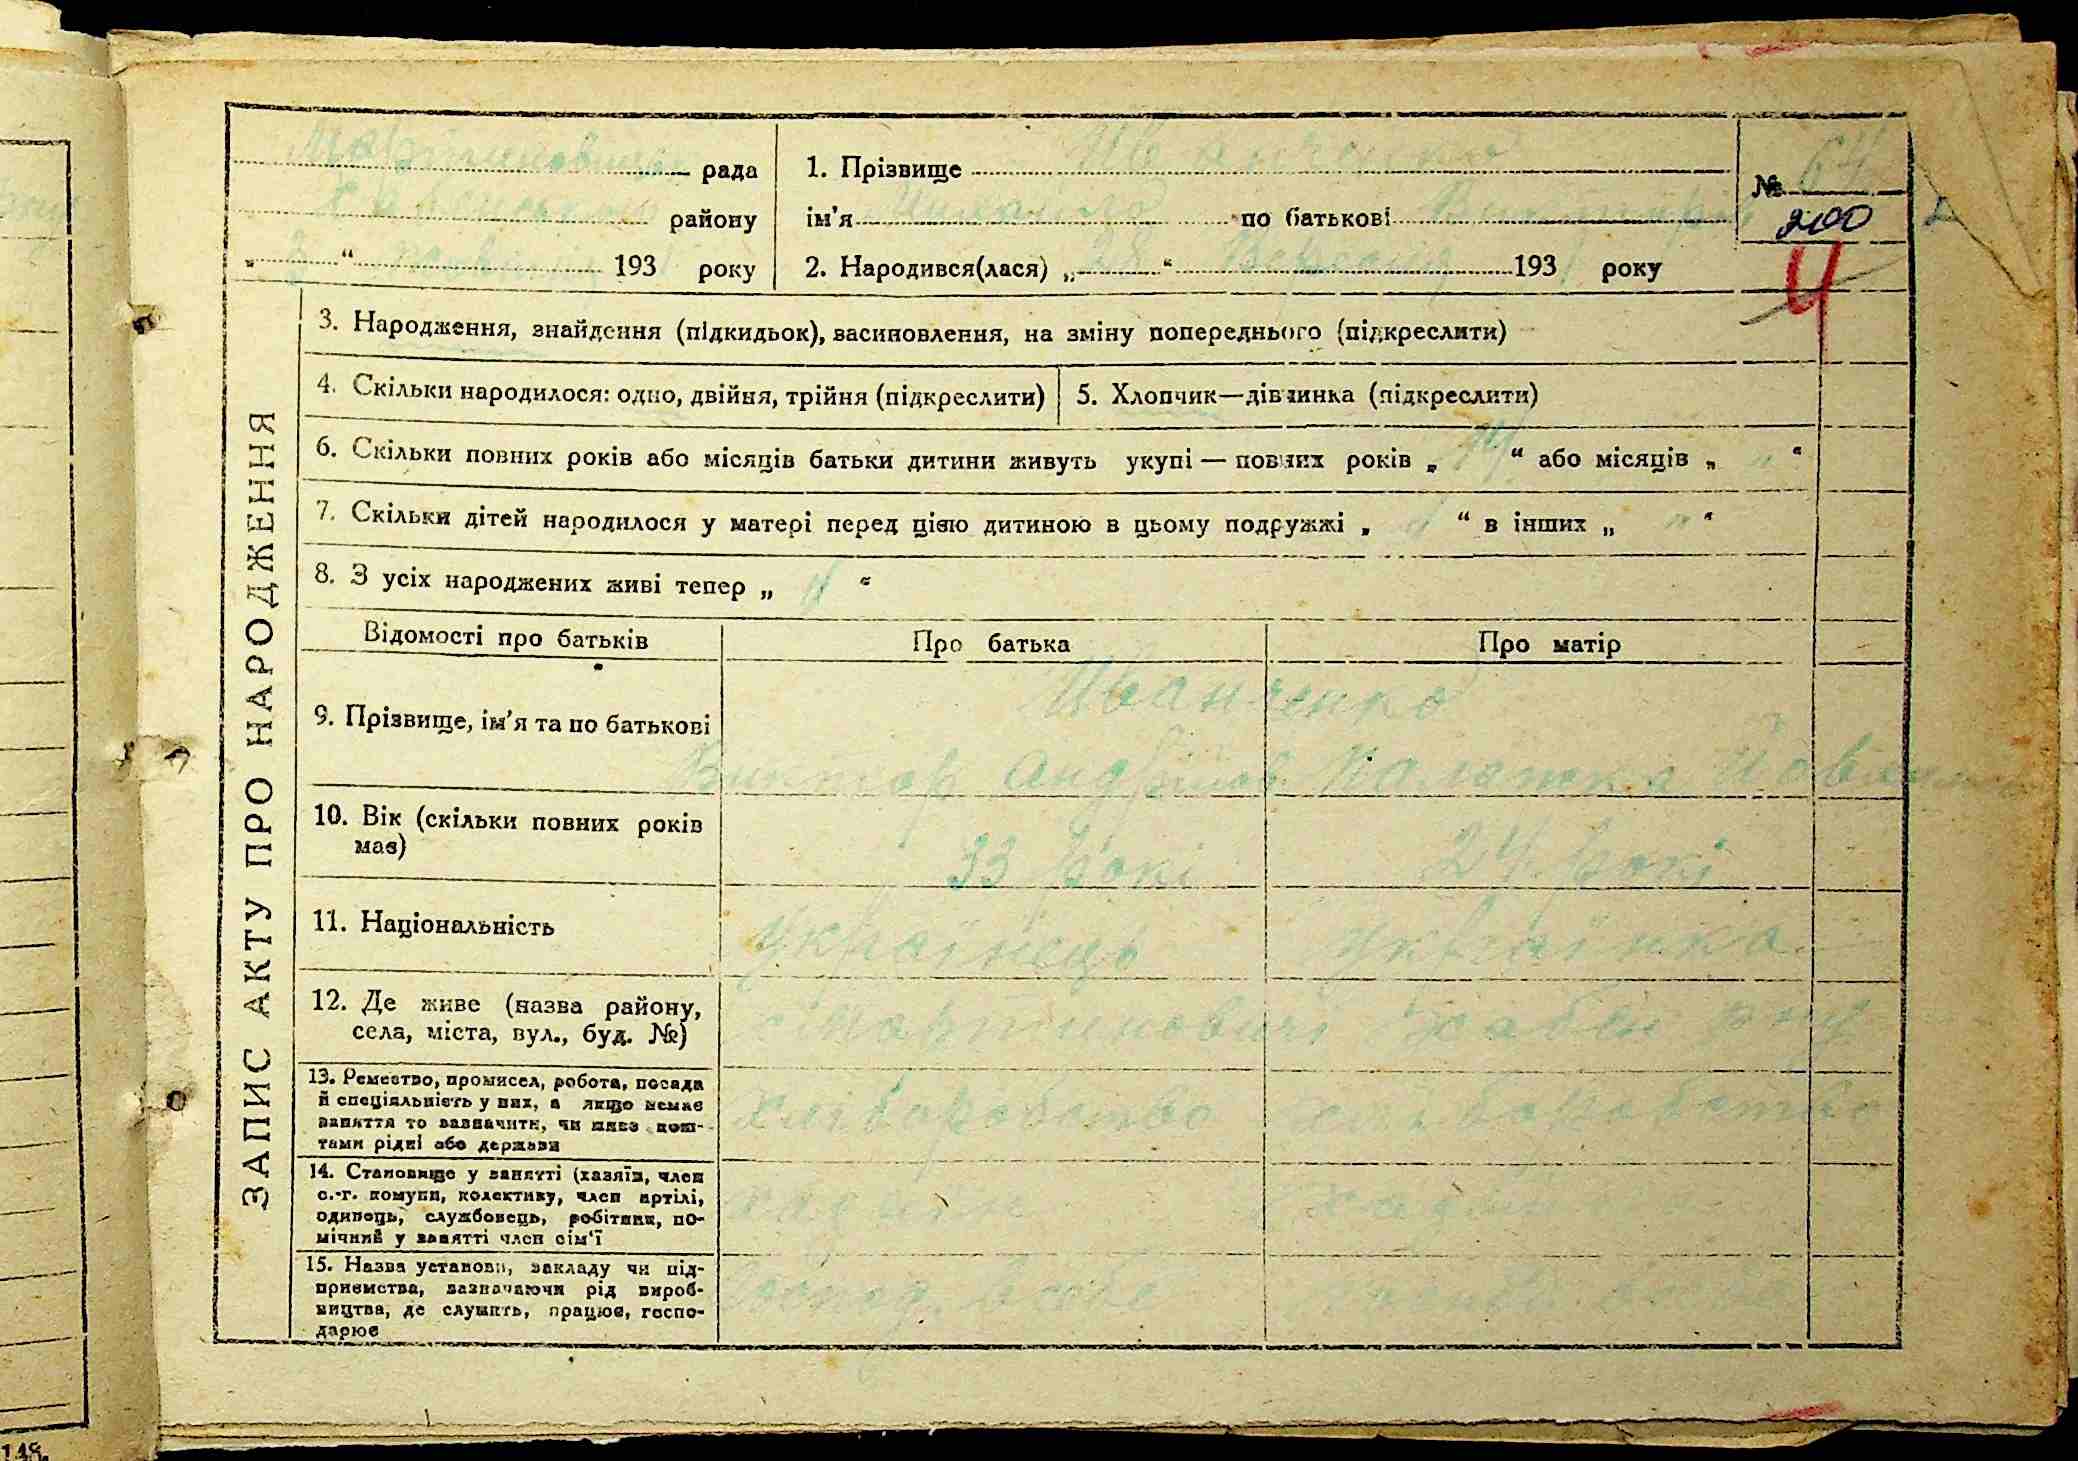 Мартиновицька рада
Хабенського району
„ 3 “ жовтня 193 року
1. Прізвище Иванченко
ім'я Микола по батькові Виктор
2. Народився(лася) „ 28 “ Вересня 193 року
№ 64
200
4
ЗАПИС АКТУ ПРО НАРОДЖЕННЯ
3. Народження, знайдення (підкидьок), засиновлення, на зміну попереднього (підкреслити)
4. Скільки народилося: одно, двійня, трійня (підкреслити)
5. Хлопчик—дівчинка (підкреслити)
6. Скільки повних років або місяців батьки дитини живуть укупі — повних років „ “ або місяців „ " “
7. Скільки дітей народилося у матері перед цією дитиною в цьому подружжі „ “ в інших „ " “
8. З усіх народжених живі тепер „ “
Відомості про батьків
Про батька
Про матір
9. Прізвище, ім'я та по батькові
Иванченко
Виктор Андрійов
10. Вік (скільки повних років
має)
33 рокі
24 рокі
11. Національність
Українець
Українка
12. Де живе (назва району,
села, міста, вул., буд. №)
с Мартиновичі Хабен р-ну
13. Ремество, промисел, робота, посада
й спеціяльність у них, а якщо немає
заняття то зазначити, чи живе кош-
тами рідні або держави
хліборобство
хліборобство
14. Становище у занятті (хазяїн, член
с.-г. комуни, колективу, член артілі,
одинець, службовець, робітник, по-
мічний у занятті член сім'ї
хазяїн
15. Назва установи, закладу чи під-
приємства, зазначаючи рід вироб-
ництва, де служить, працює, госпо-
дарює
148.